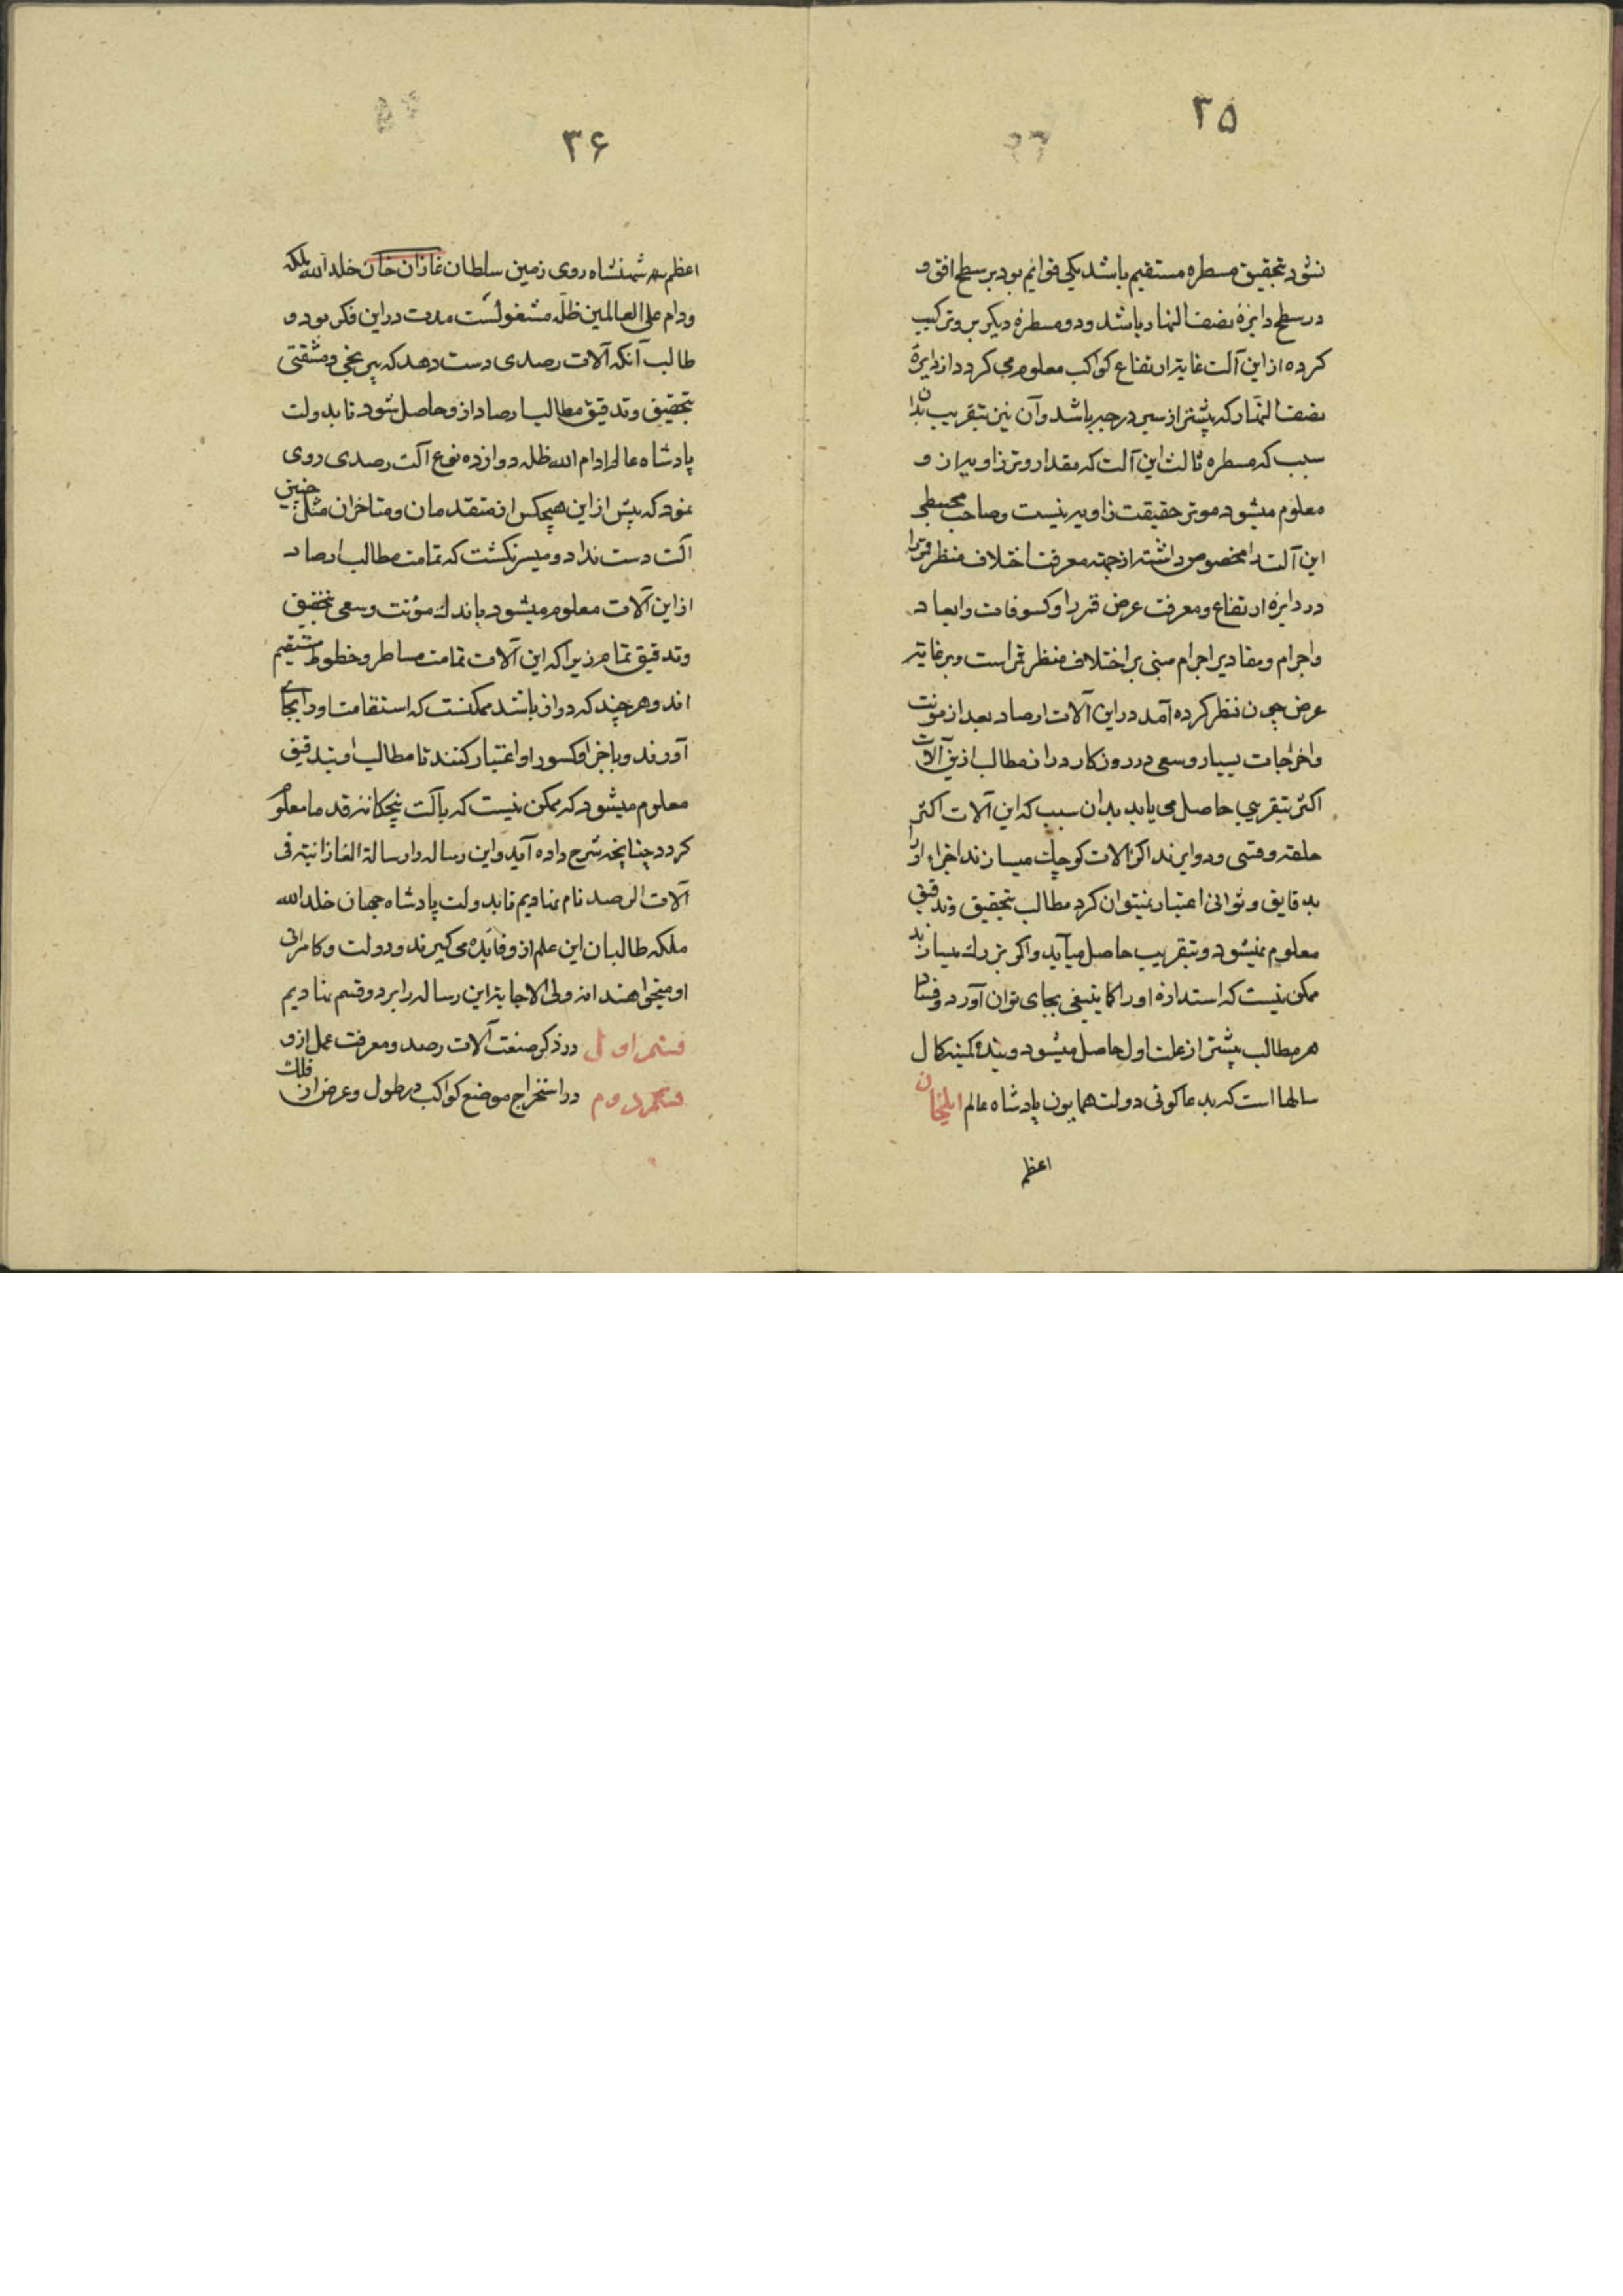 ۳۵
نشود بتحقیق مسطره مستقیم باشد یکی قوایم بود بر سطح افق و
در سطح دایرهٔ نصف النهار باشد و دو مسطرهٔ دیکر برو ترکیب
کرده از این آلت غایة ارتفاع کواکب معلوم می کردد از دایرهٔ
نصف النهار که پیشتر از سی درجه باشد و آن نیز بتقریب بدان
سبب که مسطره ثالث این آلت که مقدار وتر زاویه از و
معلوم میشود موتر حقیقت زاویه نیست و صاحب مجسطی
این آلت را مخصوص داشته از جهة معرفت اختلاف منظر قمر را
در دایره ارتفاع و معرفت عرض قمر را و کسوفات و ابعاد
و اجرام و مقادیر اجرام مبنی بر اختلاف منظر قمر است و بر غایة
عرض چون نظر کرده آمد در این آلات ارصاد بعد از مونت
و اخراجات بسیار و سعی در روزکار دراز مطالب ازین آلات
اکثر بتقریب حاصل می یابد بدان سبب که این آلات اکثر
حلقه و قسی و دوایرند اکر آلات کوچک میسازند اجزاء او را
بدقایق و ثوانی اعتبار نمیتوان کرد مطالب بتحقیق و تدقیق
معلوم نمیشود و بتقریب حاصل میآید و اکر بزرک میسازند
ممکن نیست که استدارهٔ او را کما ینبغی بجای توان آورد و فساد
هر مطالب پیشتر از علت اول حاصل میشود و بندهٔ کمینه کال
سالها است که بدعا کوئی دولت همایون پادشاه عالم ایلخان
اعظم
۳۶
اعظم شهنشاه روی زمین سلطان غازان خان خلد الله ملکه
و دام علی العالمین ظله مشغولست مدت در این فکر بود و
طالب آنکه آلات رصدی دست دهد که بی رنجی و مشقتی
بتحقیق و تدقیق مطالب ارصاد ازو حاصل شود تا بدولت
پادشاه عالم ادام الله ظله دوازده نوع آلت رصدی روی
نمود که پیش از این هیچکس از متقدمان و متاخران مثل چنین
آلت دست نداد و میسر نکشت که تمامت مطالب ارصاد
از این آلات معلوم میشود باندک مؤنت و سعی بتحقیق
و تدقیق تمام زیرا که این آلات تمامت مساطر و خطوط مستقیم
اند و هر چند که دراز باشد ممکنست که استقامت او را بجای
آورند و باجزا و کسور او اعتبار کنند تا مطالب او بتدقیق
معلوم میشود که ممکن نیست که بآلت پنجکانه قدما معلوم
کردد چنانچه شرح داده آید و این رساله را رسالة الغازانیة فی
آلات الرصد نام نهادیم تا بدولت پادشاه جهان خلد الله
ملکه طالبان این علم ازو فایده می کیرند و دولت و کامرانی
او میخواهند انه ولی الاجابة این رساله را بر دو قسم نهادیم
قسم اول در ذکر صنعت آلات رصد و معرفت عمل ازو
قسم دوم در استخراج موضع کواکب در طول و عرض از فلک